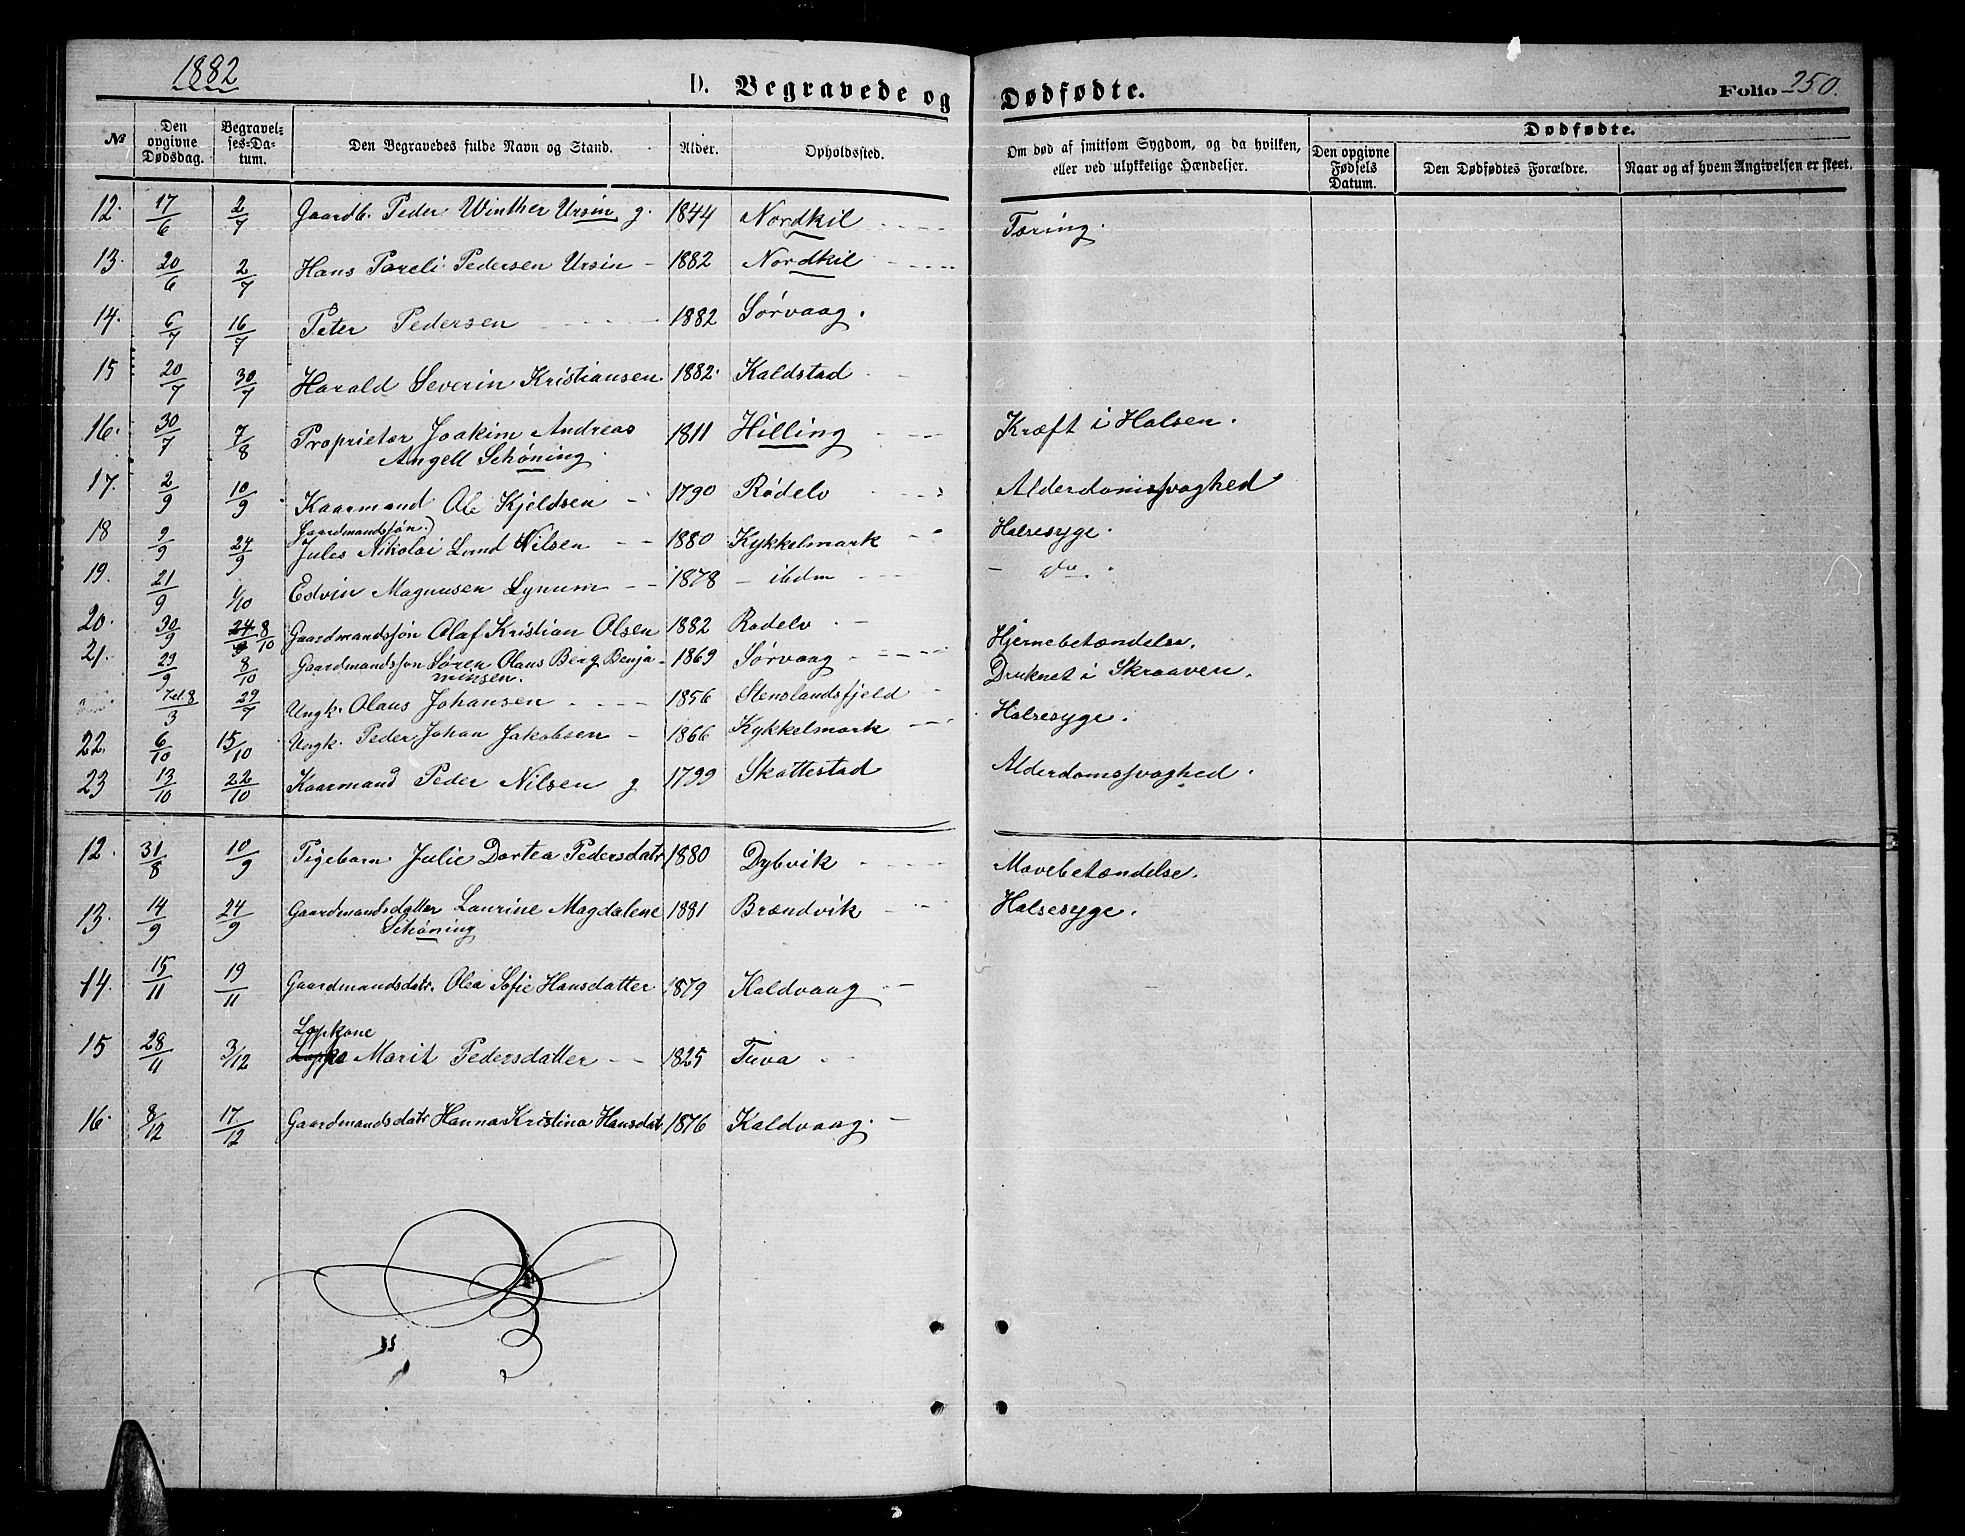 1882
D. Begravede og Dødfødte. Folio 250.
№ Den opgivne Dødsdag. Begravelses-Datum. Den Begravedes fulde Navn og Stand. Alder. Opholdssted. Om død af smitsom Sygdom, og da hvilken, eller ved ulykkelige Hændelser. Dødfødte. Den opgivne Fødsels Datum. Den Dødfødtes Forældre. Naar og af hvem Angivelsen er skeet.
12. 17/6 2/7 Gaardb. Peder Winther Ursin g. 1844 Nordkil Tæring.
13. 20/6 2/7 Hans Pareli Pedersen Ursin 1882 Nordkil
14. 6/7 16/7 Peter Pedersen 1882 Sørvaag.
15 20/7 30/7 Harald Severin Kristiansen 1882. Kaldstad
16. 30/7 7/8 Proprietær Joakim Andreas 1811 Hilling Kræft i Halsen.
Angell Schøning.
17. 2/9 10/9 Kaarmand Ole Kjeldsen 1790 Rødelv Alderdomssvaghed
Gaardmandssøn
18 9/9 24/9 Jules Nikolai Lund Nilsen 1880 Kykkelmark Halsesyge.
19. 21/9 1/10 Edvin Magnusen Lynum 1878 - ibdm - do.
20. 30/9 24/9 8/10 Gaardmandssøn Olaf Kristian Olsen 1882 Rødelv Hjernebetændelse.
21. 29/9 8/10 Gaardmandssøn Søren Olaus Berg Benja- 1869 Sørvaag Druknet i Skraaven.
minsen.
8/3 29/7 Ungk. Olaus Johansen 1856 Stenslandsfjeld Halsesyge.
22. 6/10 15/10 Ungk. Peder Johan Jakobsen 1866 Kykkelmark
23 13/10 22/10 Kaarmand Peder Nilsen g 1799 Skattestad Alderdomssvaghed.
12. 31/8 10/9 Pigebarn Julie Dortea Pedersdatr 1880 Dybvik Mavebetændelse.
13. 14/9 24/9 Gaardmandsdatter Laurine Magdalene 1881 Brændvik Halsesyge.
Schøning
14. 15/11 19/11 Gaardmandsdatr. Olea Sofie Hansdatter 1879 Kaldvaag
Lapkone
15 28/11 3/12 Marit Pedersdatter 1825 Tuva
16. 8/12 17/12 Gaardmandsdatr Hanna Kristina Hansdat 1876 Kaldvaag.